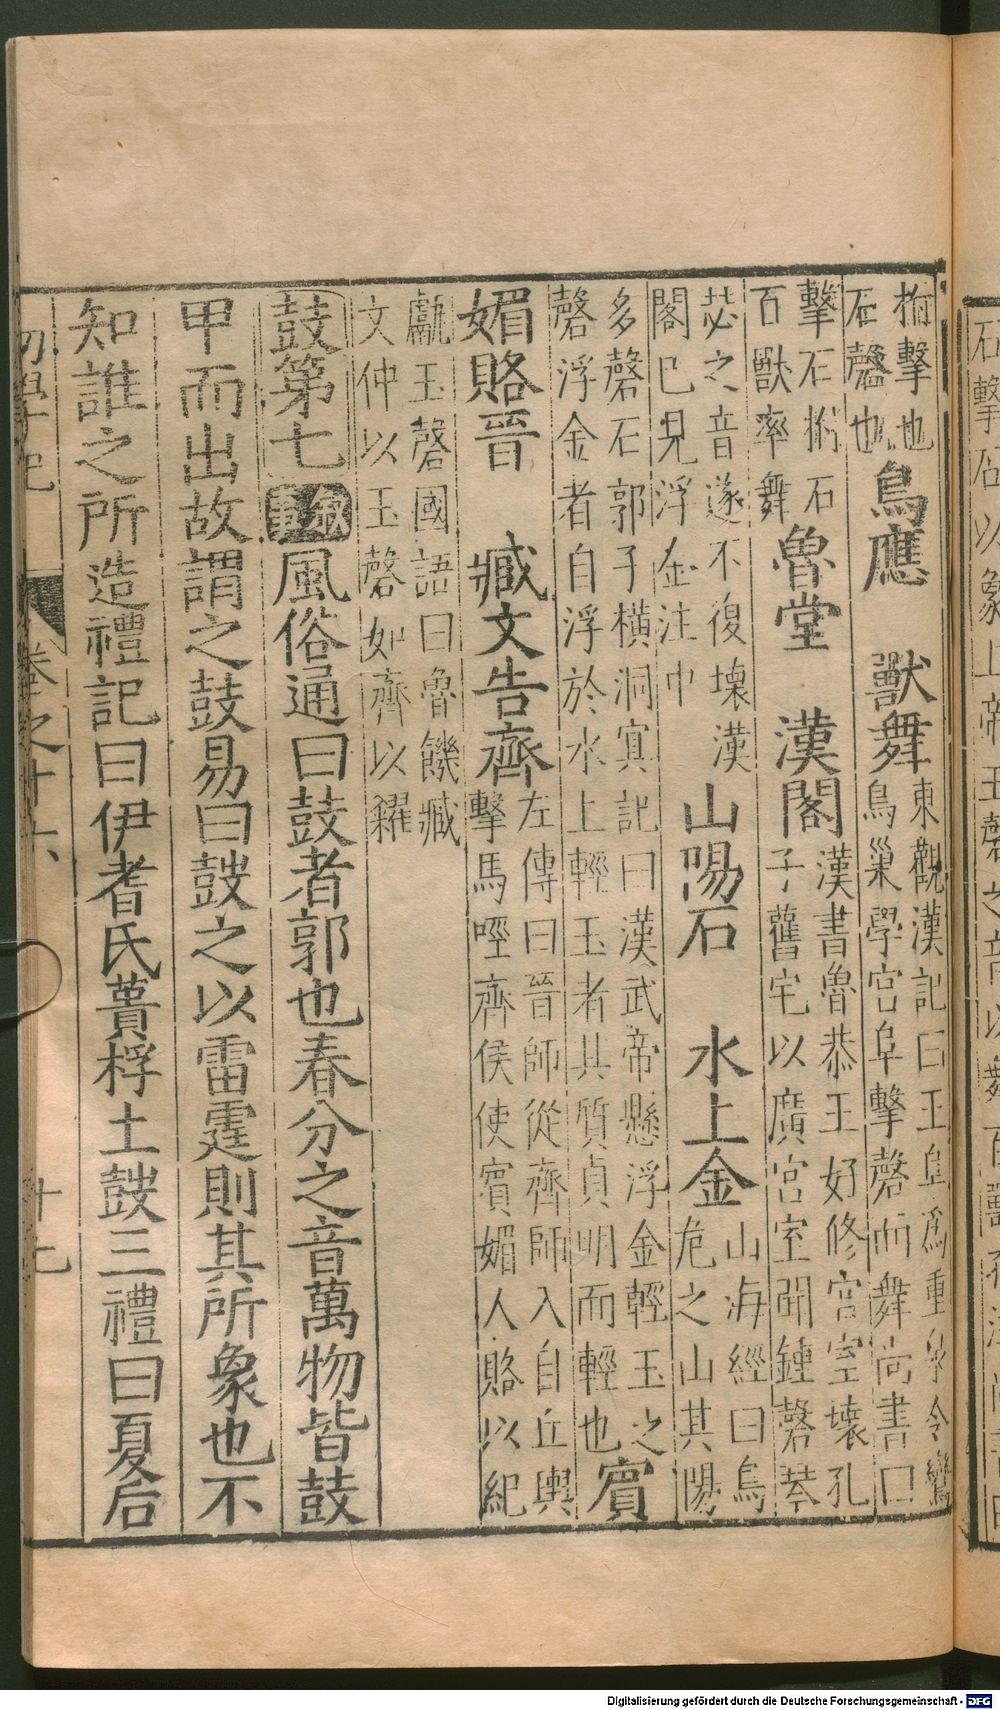 石擊石以象上帝玉磬之音以舞百獸
拊擊也
石磬也
鳥應　獸舞
東觀漢記曰王阜爲重泉令鸞
鳥巢學宮阜擊磬而舞尚書曰
擊石拊石
百獸率舞
魯堂　漢閣
漢書魯恭王好修宮室壞孔
子舊宅以廣宮室聞鍾磬琴
瑟之音遂不復壞漢
閣已見浮金注中
山陽石　水上金
山海經曰烏
危之山其陽
多磬石郭子橫洞冥記曰漢武帝懸浮金輕玉之
磬浮金者自浮於水上輕玉者其質貞明而輕也
賓
媚賂晉　臧文告齊
左傳曰晉師從齊師入自丘輿
擊馬陘齊侯使賓媚人賂以紀
甗玉磬國語曰魯饑臧
文仲以玉磬如齊以糴
鼓第七 敘事 風俗通曰鼓者郭也春分之音萬物皆鼓
甲而出故謂之鼓易曰鼓之以雷霆則其所象也不
知誰之所造禮記曰伊耆氏蕢桴土鼓三禮曰夏后
初學記 卷之十六 十七
Digitalisierung gefördert durch die Deutsche Forschungsgemeinschaft - DFG